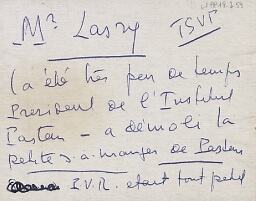 Mr Lasry
TSVP
(a été très peu de temps
President de l'Institut
Pasteur - a démoli la
petite s. a. manger de Pasteur
I.V.R. etant tout petit